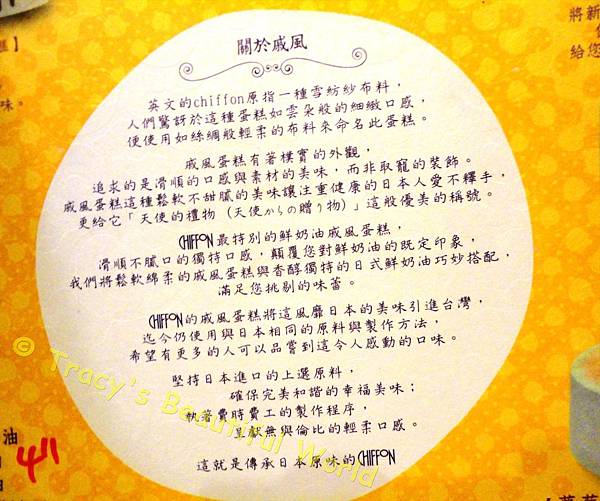 關於戚風
英文的chiffon原指一種雪紡紗布料，
人們驚訝於這種蛋糕如雲朵般的細緻口感，
便使用如絲綢般輕柔的布料來命名此蛋糕。
戚風蛋糕有著樸實的外觀，
追求的是滑順的口感與素材的美味，而非取寵的裝飾。
戚風蛋糕這種鬆軟不甜膩的美味讓注重健康的日本人愛不釋手，
更給它「天使的禮物（天使からの贈り物）」這般優美的稱號。
CHIFFON最特別的鮮奶油戚風蛋糕，
滑順不膩口的獨特口感，顛覆您對鮮奶油的既定印象，
我們將鬆軟綿柔的戚風蛋糕與香醇獨特的日式鮮奶油巧妙搭配，
滿足您挑剔的味蕾。
CHIFFON的戚風蛋糕將這風靡日本的美味引進台灣，
迄今仍使用與日本相同的原料與製作方法，
希望有更多的人可以品嘗到這令人感動的口味。
堅持日本進口的上選原料，
確保完美和諧的幸福美味；
執著費時費工的製作程序，
呈獻無與倫比的輕柔口感。
這就是傳承日本原味的CHIFFON
將新
給您
味。
油
© Tracy's Beautiful World